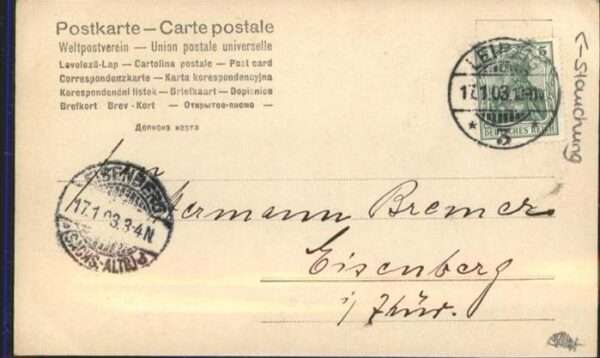 Postkarte — Carte postale
Weltpostverein — Union postale universelle
Levelezö-Lap — Cartolina postale — Post card
Correspondenzkarte — Karta korespondencyjna
Korespondenční listek — Briefkaart — Dopisnica
Brefkort Brev-Kort — Открытое письмо —
Дописна карта
LEIPZIG
17.1.03.
* 3 *
5
DEUTSCHES REICH
←Stauchung
EISENBERG
17.1.03.3-4N
(SACHS.-ALTB.)
Hermann Bremer
Eisenberg
i/Thür.